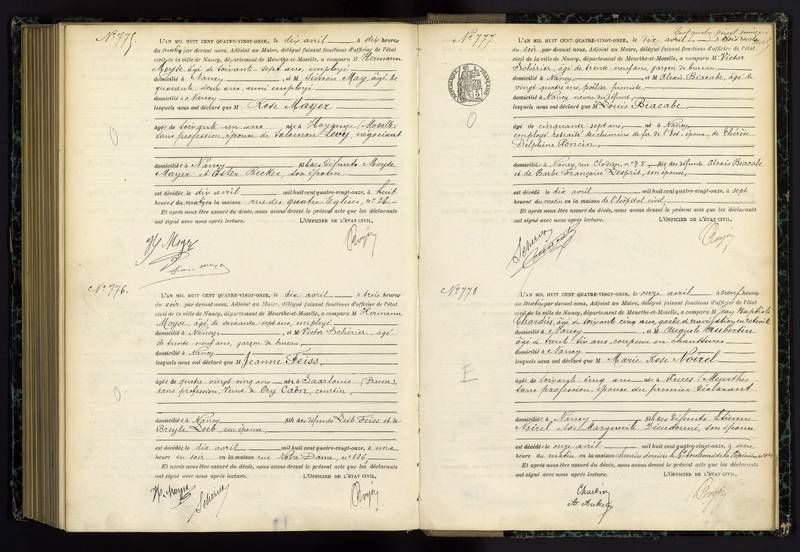 N° 775.
L'AN MIL HUIT CENT QUATRE-VINGT-ONZE, le dix avril à dix heures
du matin par devant nous, Adjoint au Maire, délégué faisant fonctions d'officier de l'état
civil de la ville de Nancy, département de Meurthe-et-Moselle, a comparu M Hermann
Mayse, âgé de soixante sept ans, employé
domicilié à Nancy, et M Simon May, âgé de
quarante deux ans, aussi employé
domicilié à Nancy
lesquels nous ont déclaré que M Rose Mayer
âgée de soixante un ans née à Hayange (Moselle)
sans profession, épouse de Salomon Levy, négociant
domiciliée à Nancy fille des défunts Mayse
Mayer et Ester Becker, son épouse
est décédée le dix avril mil huit cent quatre-vingt-onze, à huit
heures du matin en la maison rue des quatre Eglises, n° 26
Et après nous être assuré du décès, nous avons dressé le présent acte que les déclarants
ont signé avec nous après lecture. L'OFFICIER DE L'ÉTAT CIVIL,
N° 776.
L'AN MIL HUIT CENT QUATRE-VINGT-ONZE, le dix avril à trois heures
du soir par devant nous, Adjoint au Maire, délégué faisant fonctions d'officier de l'état
civil de la ville de Nancy, département de Meurthe-et-Moselle, a comparu M Hermann
Mayse, âgé de soixante sept ans, employé
domicilié à Nancy et M Victor Schérier, âgé
de trente neuf ans, garçon de bureau
domicilié à Nancy
lesquels nous ont déclaré que M Jeanne Feiss
âgée de quatre vingt cinq ans née à Saarlouis (Prusse)
sans profession, veuve de Ory Caën, courtier
domiciliée à Nancy fille des défunts Leib Feiss et de
Breyle Loeb, son épouse
est décédée le dix avril mil huit cent quatre-vingt-onze, à une
heure du soir en la maison rue Notre Dame, n° 106
Et après nous être assuré du décès, nous avons dressé le présent acte que les déclarants
ont signé avec nous après lecture. L'OFFICIER DE L'ÉTAT CIVIL,
Scherier
N° 777
L'AN MIL HUIT CENT QUATRE-VINGT-ONZE, le dix avril à trois heures
du soir par devant nous, Adjoint au Maire, délégué faisant fonctions d'officier de l'état
civil de la ville de Nancy, département de Meurthe-et-Moselle, a comparu M Victor
Schérier, âgé de trente neuf ans, garçon de bureau
domicilié à Nancy et M Alexis Biacabe, âgé de
vingt quatre ans, potier fumiste
domicilié à Nancy neveu du défunt
lesquels nous ont déclaré que M Louis Biacabe
âgé de cinquante sept ans, né à Nancy
employé retraité des chemins de fer de l'Est, époux de Thérèse
Delphine Poncin,
domicilié à Nancy, rue Clodion n° 75 fils des défunts Alexis Biacabe
et de Barbe Françoise Lesprit, son épouse,
est décédé le dix avril mil huit cent quatre-vingt-onze, à sept
heures du matin en la maison de l'hôpital civil
Et après nous être assuré du décès, nous avons dressé le présent acte que les déclarants
ont signé avec nous après lecture. L'OFFICIER DE L'ÉTAT CIVIL,
Scherier
N° 778
L'AN MIL HUIT CENT QUATRE-VINGT-ONZE, le onze avril à neuf heures
du matin par devant nous, Adjoint au Maire, délégué faisant fonctions d'officier de l'état
civil de la ville de Nancy, département de Meurthe-et-Moselle, a comparu M Jean Baptiste
âgé de soixante cinq ans, garde de navigation en retraite
domicilié à Nancy, et M Auguste Aubertin
âgé de trente six ans, coupeur en chaussures
domicilié à Nancy
lesquels nous ont déclaré que M Marie Rose Noirel
âgée de soixante cinq ans née à (Meurthe)
sans profession, épouse du premier déclarant
domiciliée à Nancy fille des défunts Etienne
Noirel et de Marguerite Dieudonné, son épouse
est décédée le onze avril mil huit cent quatre-vingt-onze, à une
heure du matin en la maison
Et après nous être assuré du décès, nous avons dressé le présent acte que les déclarants
ont signé avec nous après lecture. L'OFFICIER DE L'ÉTAT CIVIL,